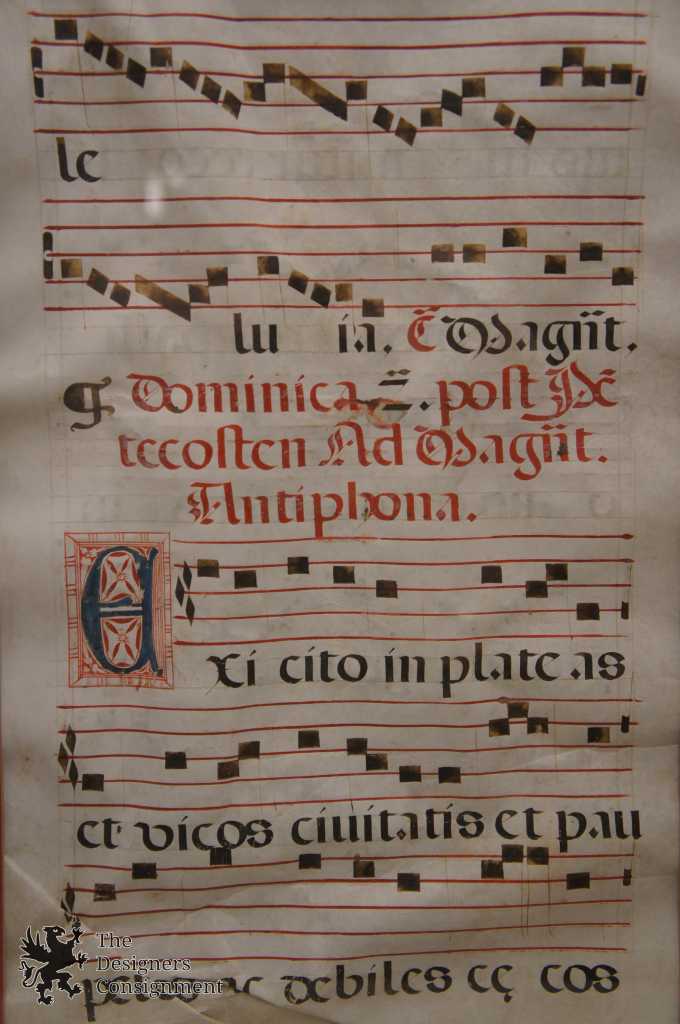 le
lu ia. E Magn̄t.
g Dominica 2. post Pē
tecosten Ad Magn̄t.
Antiphona.
Exi cito in plateas
et vicos ciuitatis et pau
debiles cę cos
The
Designers
Consignment